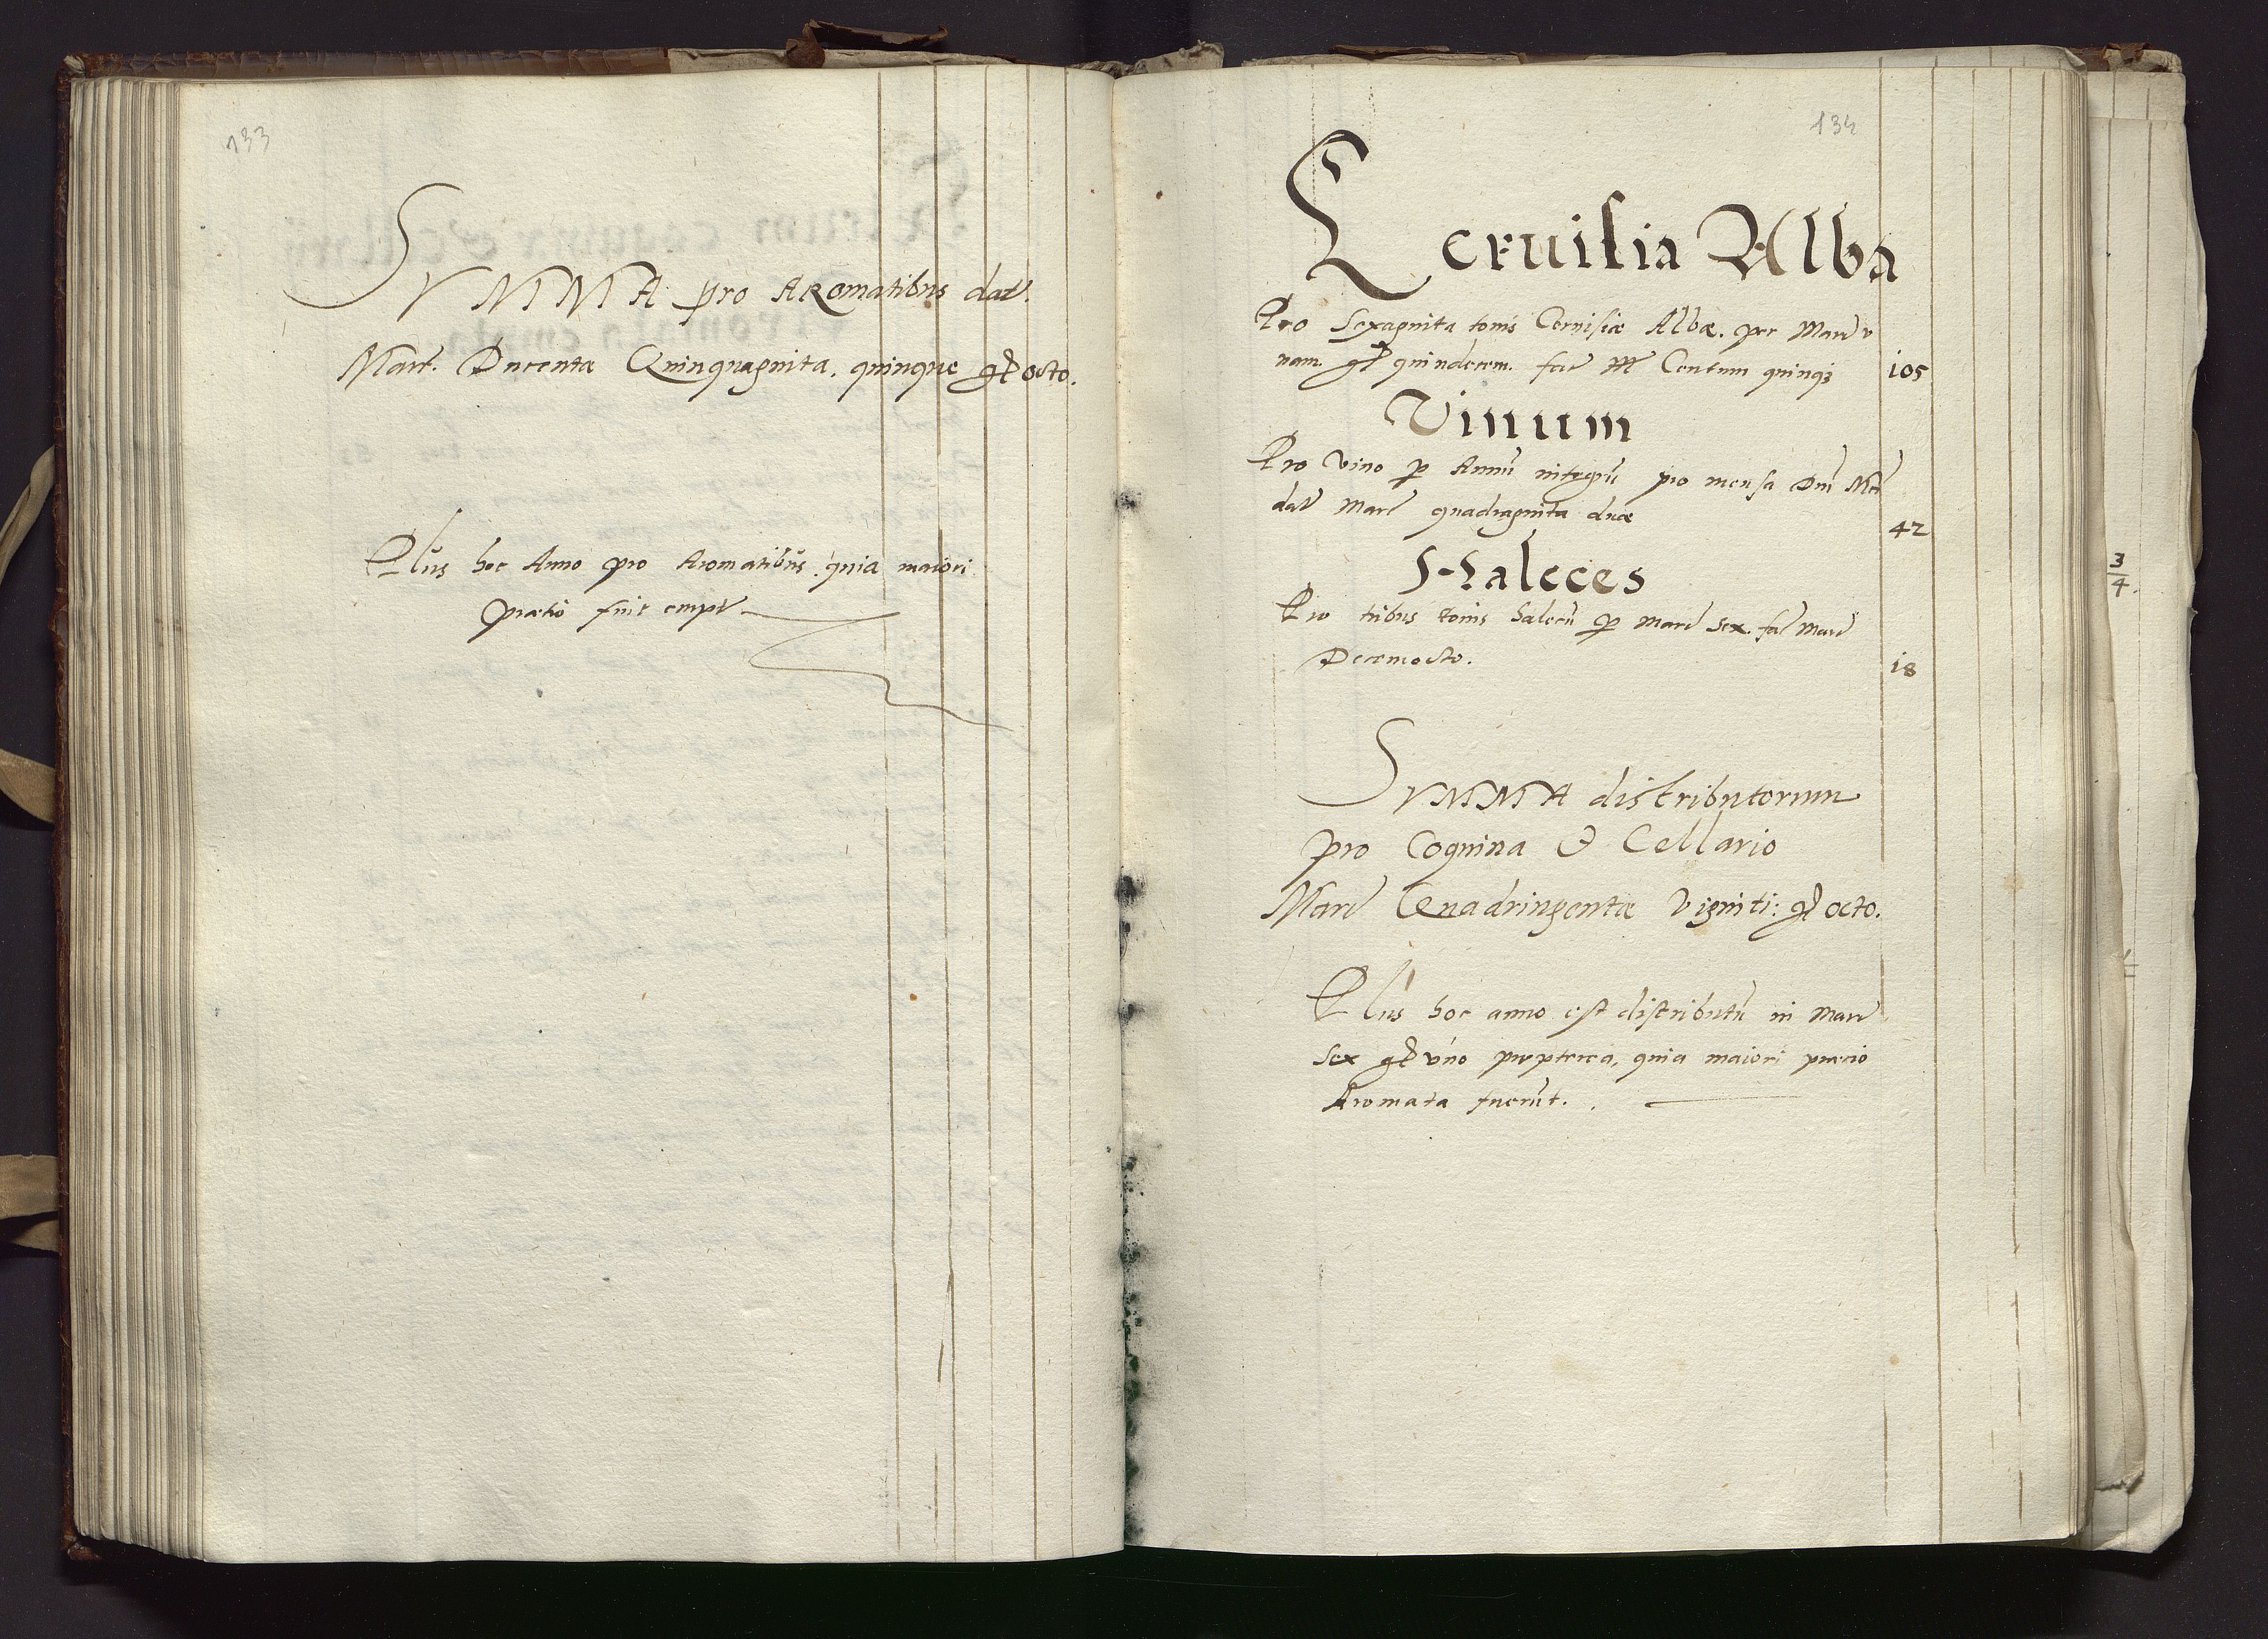 133
SVMMA pro Aromatibus dat.
Marc. Ducenta Quinquaginta, quinque gr octo.
Plus hoc Anno pro Aromatibus. quia maiori
praetio fuit empt
134
Ceruisia Alba
Pro Sexaginta tonis Ceruisiae Albae. per Marc v
nam. gr quindecem. fac M Centum quinq3 105
Vinum
Pro vino p Annu integru pro mensa Dni
dat Marc quadraginta duae 42
Haleces
Pro tribus tonis halecu p marc sex. fac Marc
Decemocto. 18
SVMMA distributorum
pro Coquina & Cellario
Marc Quadringentae viginti: gr octo.
Plus hoc anno est distributu in Marc
sex gr uno propterea, quia maiori praecio
Aromata fuerut.
3
4.